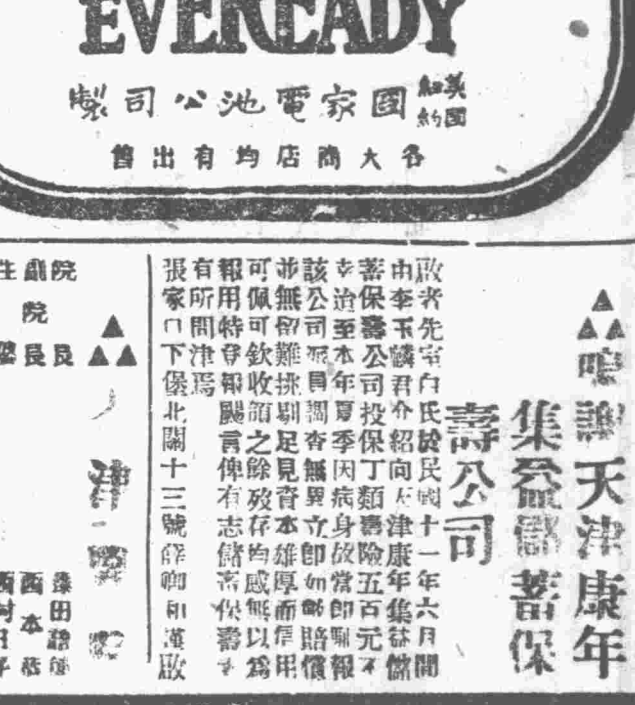 EVEREADY
美國紐約國家電池公司製
各大商店均有出售
鳴謝天津康年
集益儲蓄保
壽公司
啟者先室白氏於民國十一年六月間
由李玉麟君介紹向天津康年集益儲
蓄保壽公司投保丁類壽險五百元不
幸迨至本年夏季因病身故當即報
該公司派員調查無異立即如數賠償
並無留難挑剔足見資本雄厚而信用
可佩可欽收領之餘歿存均感無以為
報用特登報颺言俾有志儲蓄保壽
有所問津焉
張家口下堡北關十三號薛卿和謹啟
院長
劇院長
津
田
西本
西村